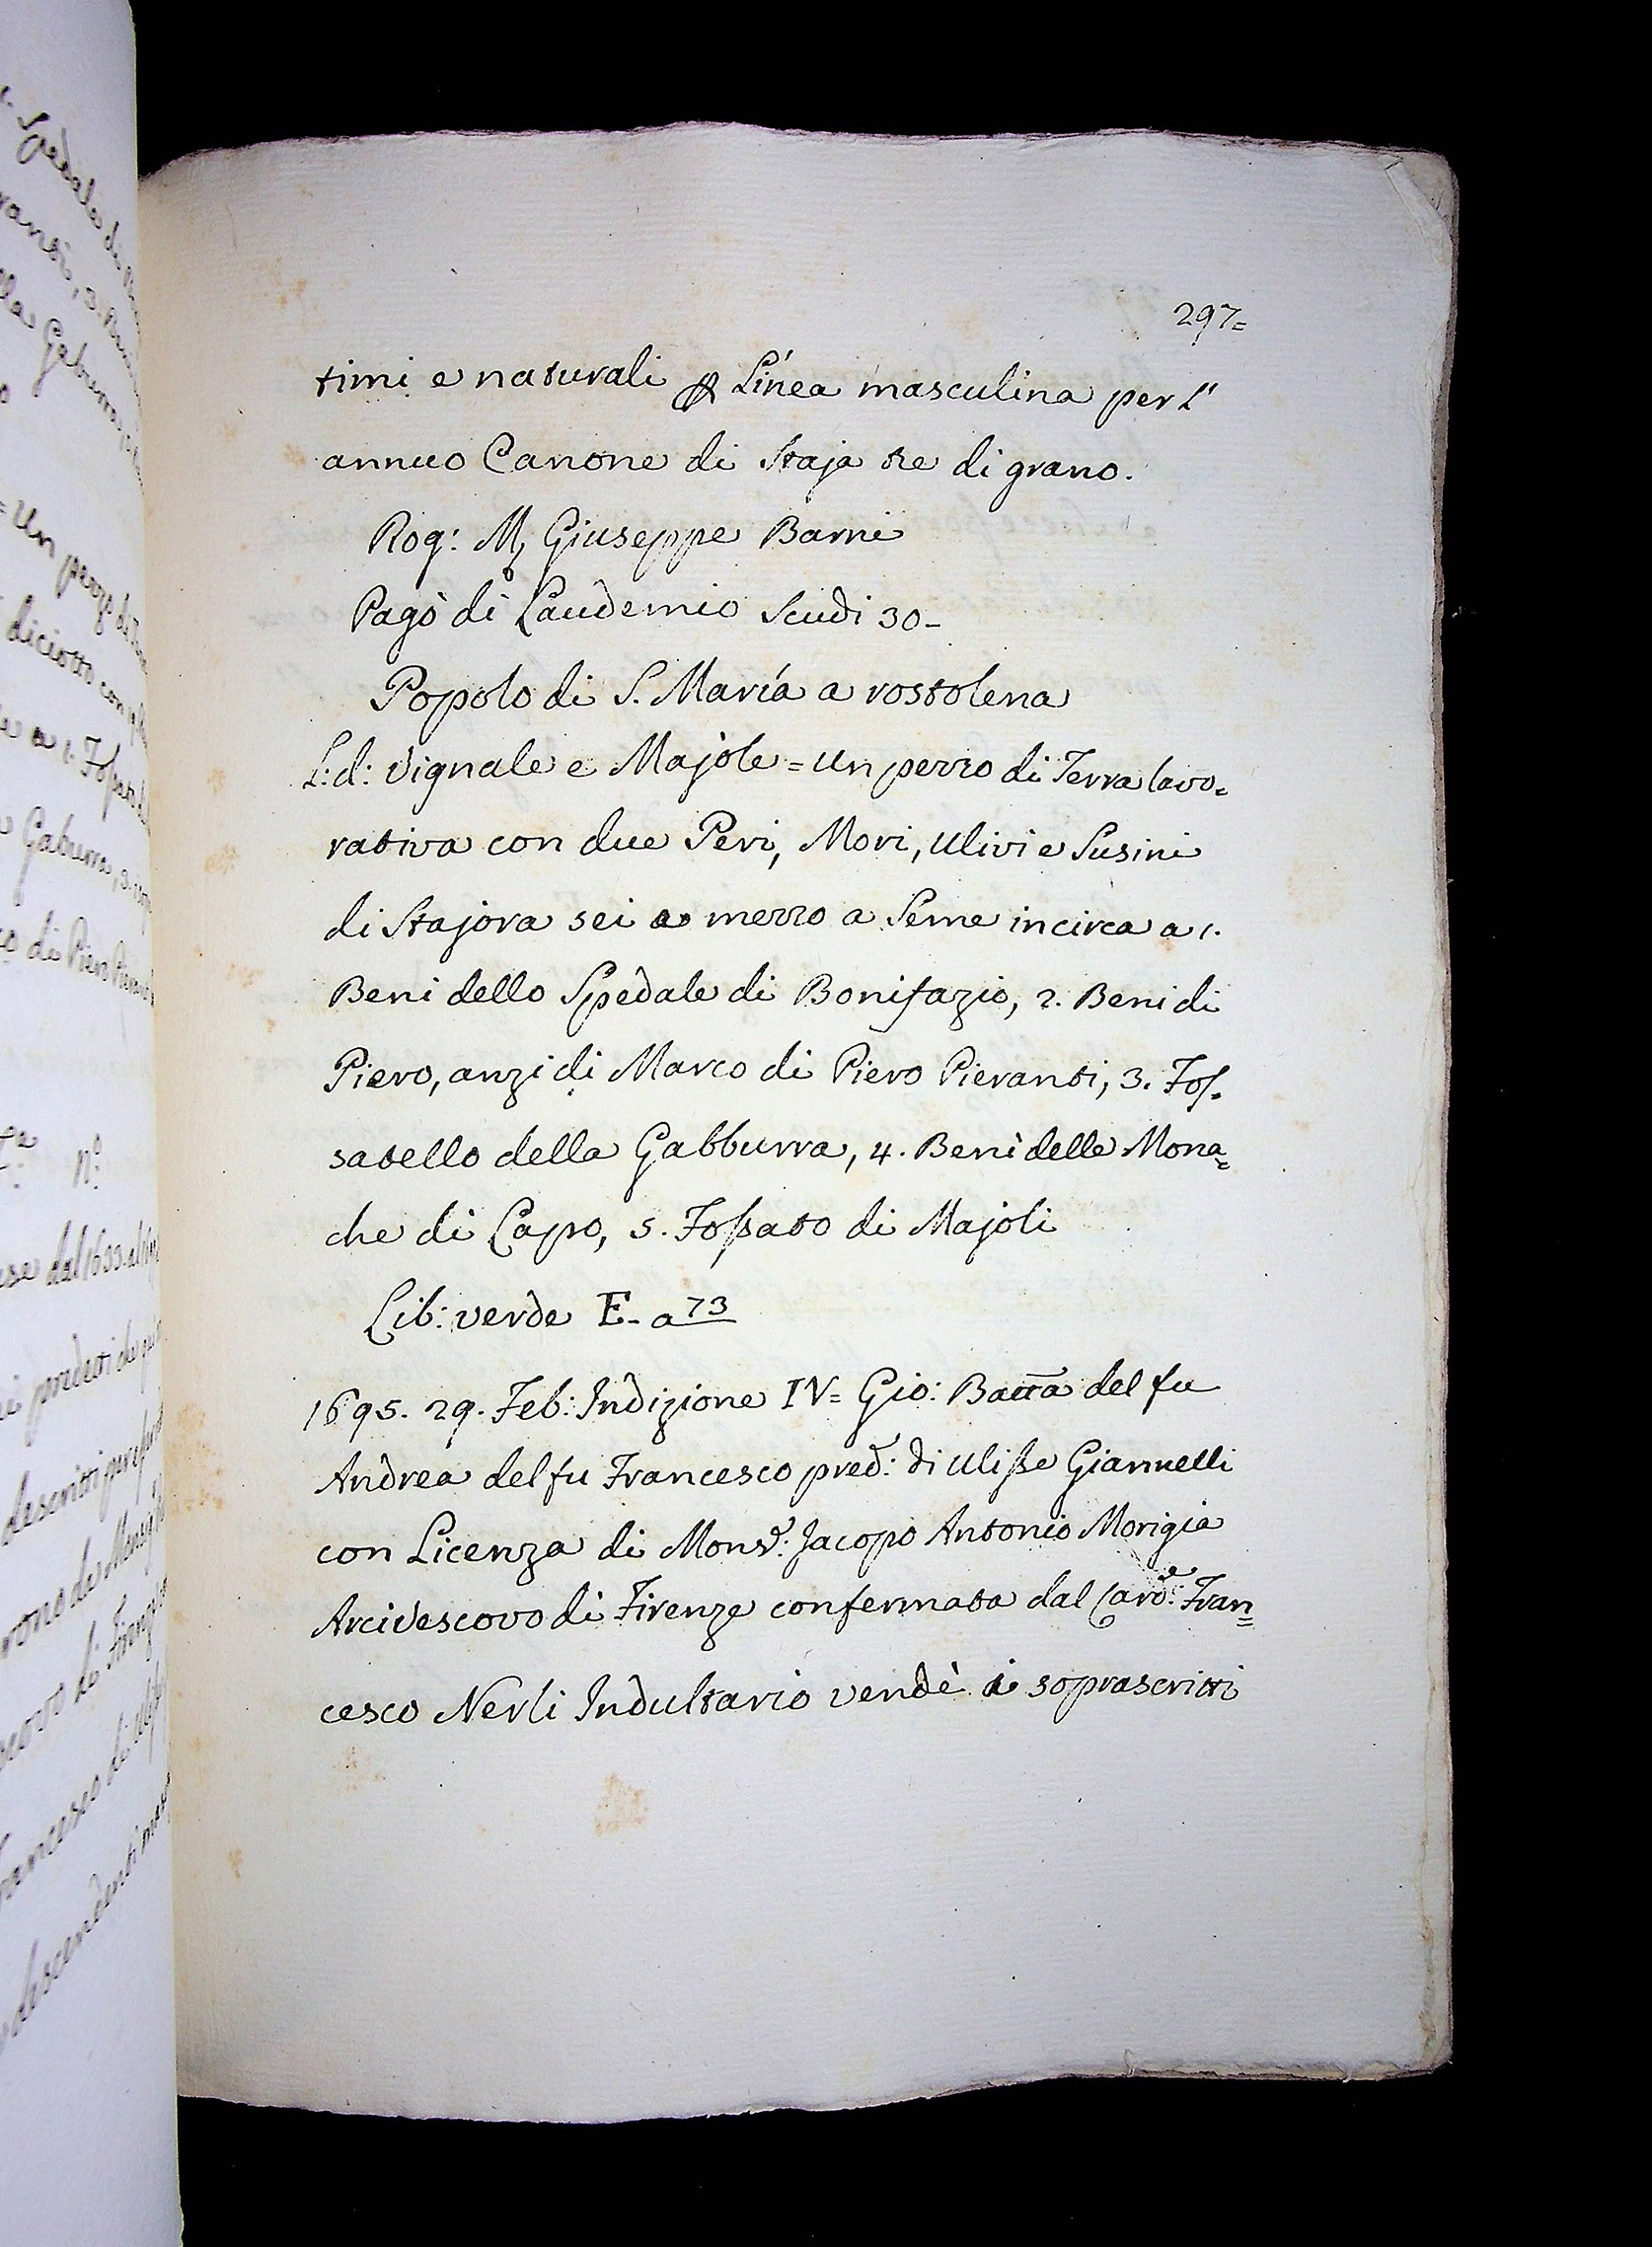 297=
timi e naturali p Linea masculina per l'
annuo Canone di Staja tre di grano.
Rog: M, Giuseppe Barni
Pagò di Laudemio Scudi 30-
Popolo di S. María a rostolena
L: d: Vignale e Majole = Un pezzo di Terra lavo=
rativa con due Peri, Mori, Ulivi e Susini
di Stajora sei a mezzo a Seme in circa a 1.
Beni dello Spedale di Bonifazio, 2. Beni di
Piero, anzi di Marco di Piero Pieranti, 3. Fos.
satello della Gabburra, 4. Beni delle Mona=
che di Capo, 5. Fossato di Majoli
Lib: verde E- a 73
1695. 29. Feb: Indizione IV= Gio: Batta del fu
Andrea del fu Francesco pred: di Ulisse Giannelli
con Licenza di Monsr: Jacopo Antonio Morigia
Arcivescovo di Firenze confermata dal Carde: Fran=
cesco Nerli Indultario vendè i soprascritti